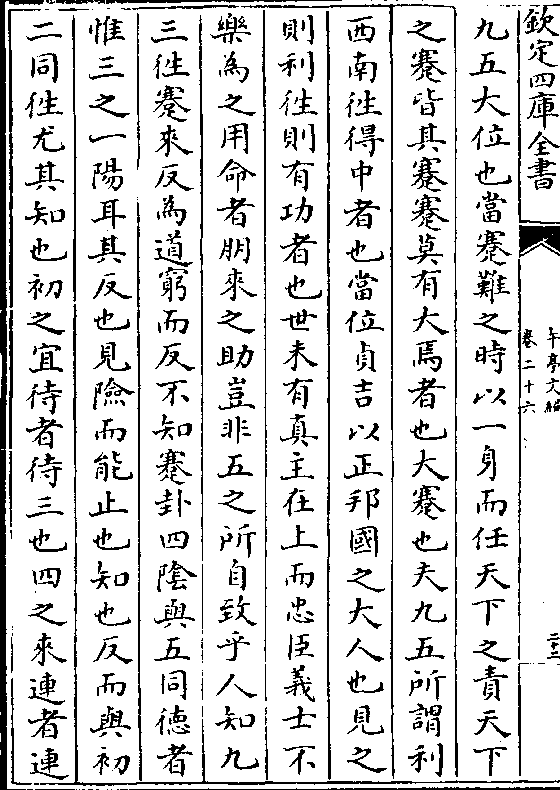 欽定四庫全書
午亭文編
卷二十六
二十二
九五大位也當蹇難之時以一身而任天下之責天下
之蹇皆其蹇蹇莫有大焉者也大蹇也夫九五所謂利
西南徃得中者也當位貞吉以正邦國之大人也見之
則利徃則有功者也世未有真主在上而忠臣義士不
樂為之用命者朋來之助豈非五之所自致乎人知九
三徃蹇來反為道窮而反不知蹇卦四陰與五同徳者
惟三之一陽耳其反也見險而能止也知也反而與初
二同徃尤其知也初之宜待者待三也四之來連者連